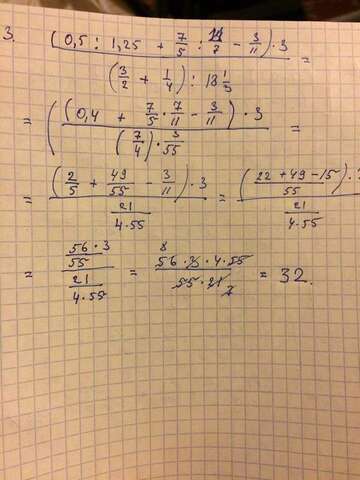 3. (0,5 : 1,25 + 7/5 : 11/7 - 3/11) · 3
(3/2 + 1/4) : 18 1/3 =
= ((0,4 + 7/5 · 7/11 - 3/11) · 3
(7/4) · 3/55 =
= (2/5 + 49/55 - 3/11) · 3 / 21/4·55 = (22 + 49 - 15/55) · / 21/4·55
= 56·3/55 / 21/4·55 = 8 56·3·4·55 / 55·21 7 = 32.